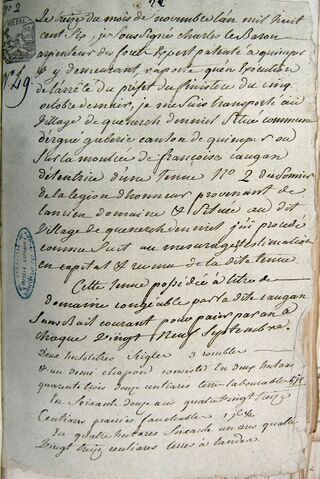 Le seize du mois de novembre l'an mil huit
cent Sep, je Soussigné charles Le Baron
arpenteur des forêts Expert patenté a quimper
& y demeurant, raporte qu'en Exécution
de l'arrêté du préfet du finistère du cinq
octobre dernier, je me suis transporté au
village de quenerch deniel Situé commune
d'ergué gaberic canton de quimper ou
Sur la montrée de françoise caugan
détentrice d'une Tenue N° 2 du Somier
de la legion d'honneur provenant de
l'ancien domaine & Située au dit
village de quenerch deniel j'ai procédé
comme Suit au mesurage & estimation
en capital & revenu de la dite tenue
Cette Tenue possédée à titre de
domaine congéable par la dite caugan
Sans Bail courant pour paier par an a
chaque Vingt Neuf Septembre.
Deux hectolitres Seigle 3 combles
& un demi chapon consiste En deux hectares
quarente huit douze centiares terre labourable
En Soixante douze ares quatre Vingt Seize
Centiares prairies fauchables
En quatre hectares Soixante un ares quatre
Vingt Treize centiares terres à landes
N° 2
N° 49